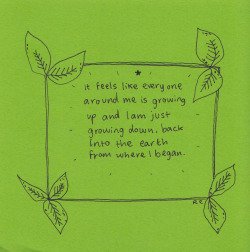 it feels like everyone
around me is growing
up and I am just
growing down, back
into the earth
from where I began.
R.E